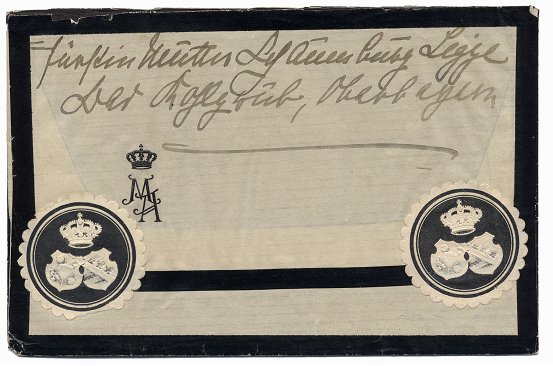 Fürstin Mutter Schaumburg Lippe
Bad Kohlgrub, Oberbayern
MA